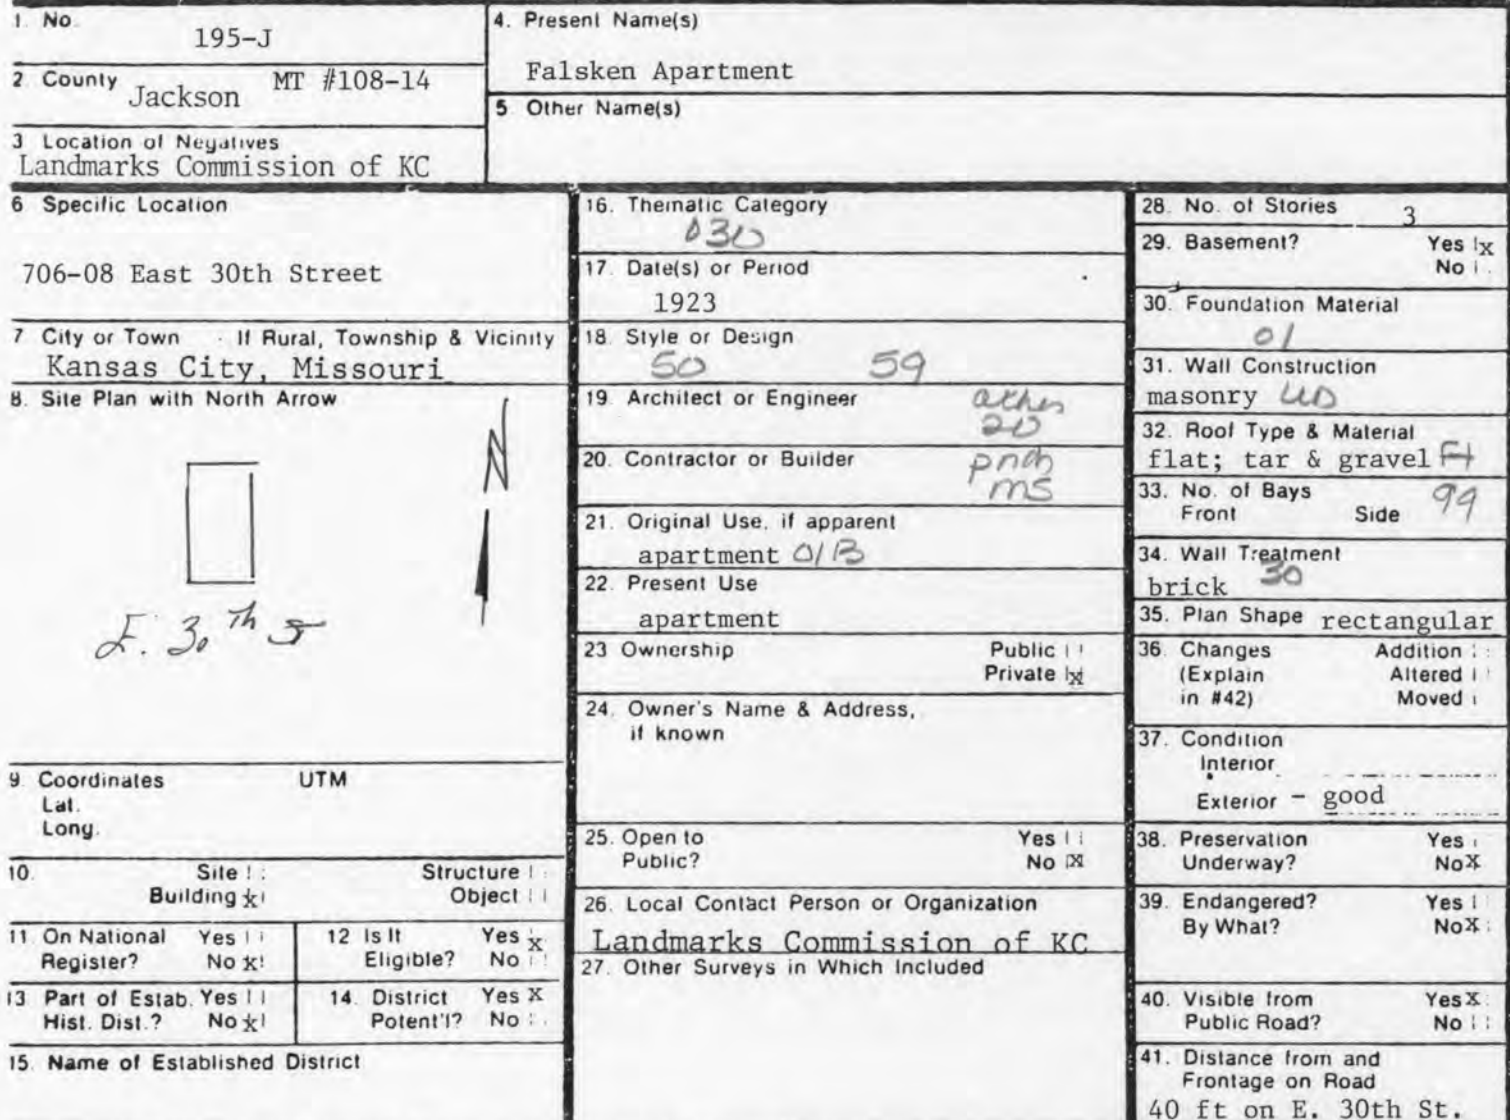 1. No.
195-J
2 County Jackson MT #108-14
3 Location of Negatives
Landmarks Commission of KC
4. Present Name(s)
Falsken Apartment
5 Other Name(s)
6 Specific Location
706-08 East 30th Street
7 City or Town If Rural, Township & Vicinity
Kansas City, Missouri
8. Site Plan with North Arrow
N
E. 30th St
9. Coordinates UTM
Lat.
Long.
10. Site Structure
Building x Object
11. On National Yes
Register? No x
12 Is It Yes x
Eligible? No
13. Part of Estab. Yes
Hist. Dist.? No x
14. District Yes X
Potent'l? No
15. Name of Established District
16. Thematic Category
030
17. Date(s) or Period
1923
18. Style or Design
50 59
19. Architect or Engineer
20
20. Contractor or Builder
pnch
ms
21. Original Use, if apparent
apartment 01B
22. Present Use
apartment
23 Ownership Public
Private x
24. Owner's Name & Address,
if known
25. Open to Yes
Public? No X
26. Local Contact Person or Organization
Landmarks Commission of KC
27. Other Surveys in Which Included
28. No. of Stories 3
29. Basement? Yes x
No
30. Foundation Material
01
31. Wall Construction
masonry UD
32. Roof Type & Material
flat; tar & gravel Ft
33. No. of Bays
Front Side 99
34. Wall Treatment
brick 30
35. Plan Shape rectangular
36. Changes Addition
(Explain Altered
in #42) Moved
37. Condition
Interior
Exterior - good
38. Preservation Yes
Underway? No X
39. Endangered? Yes
By What? No X
40. Visible from Yes X
Public Road? No
41. Distance from and
Frontage on Road
40 ft on E. 30th St.